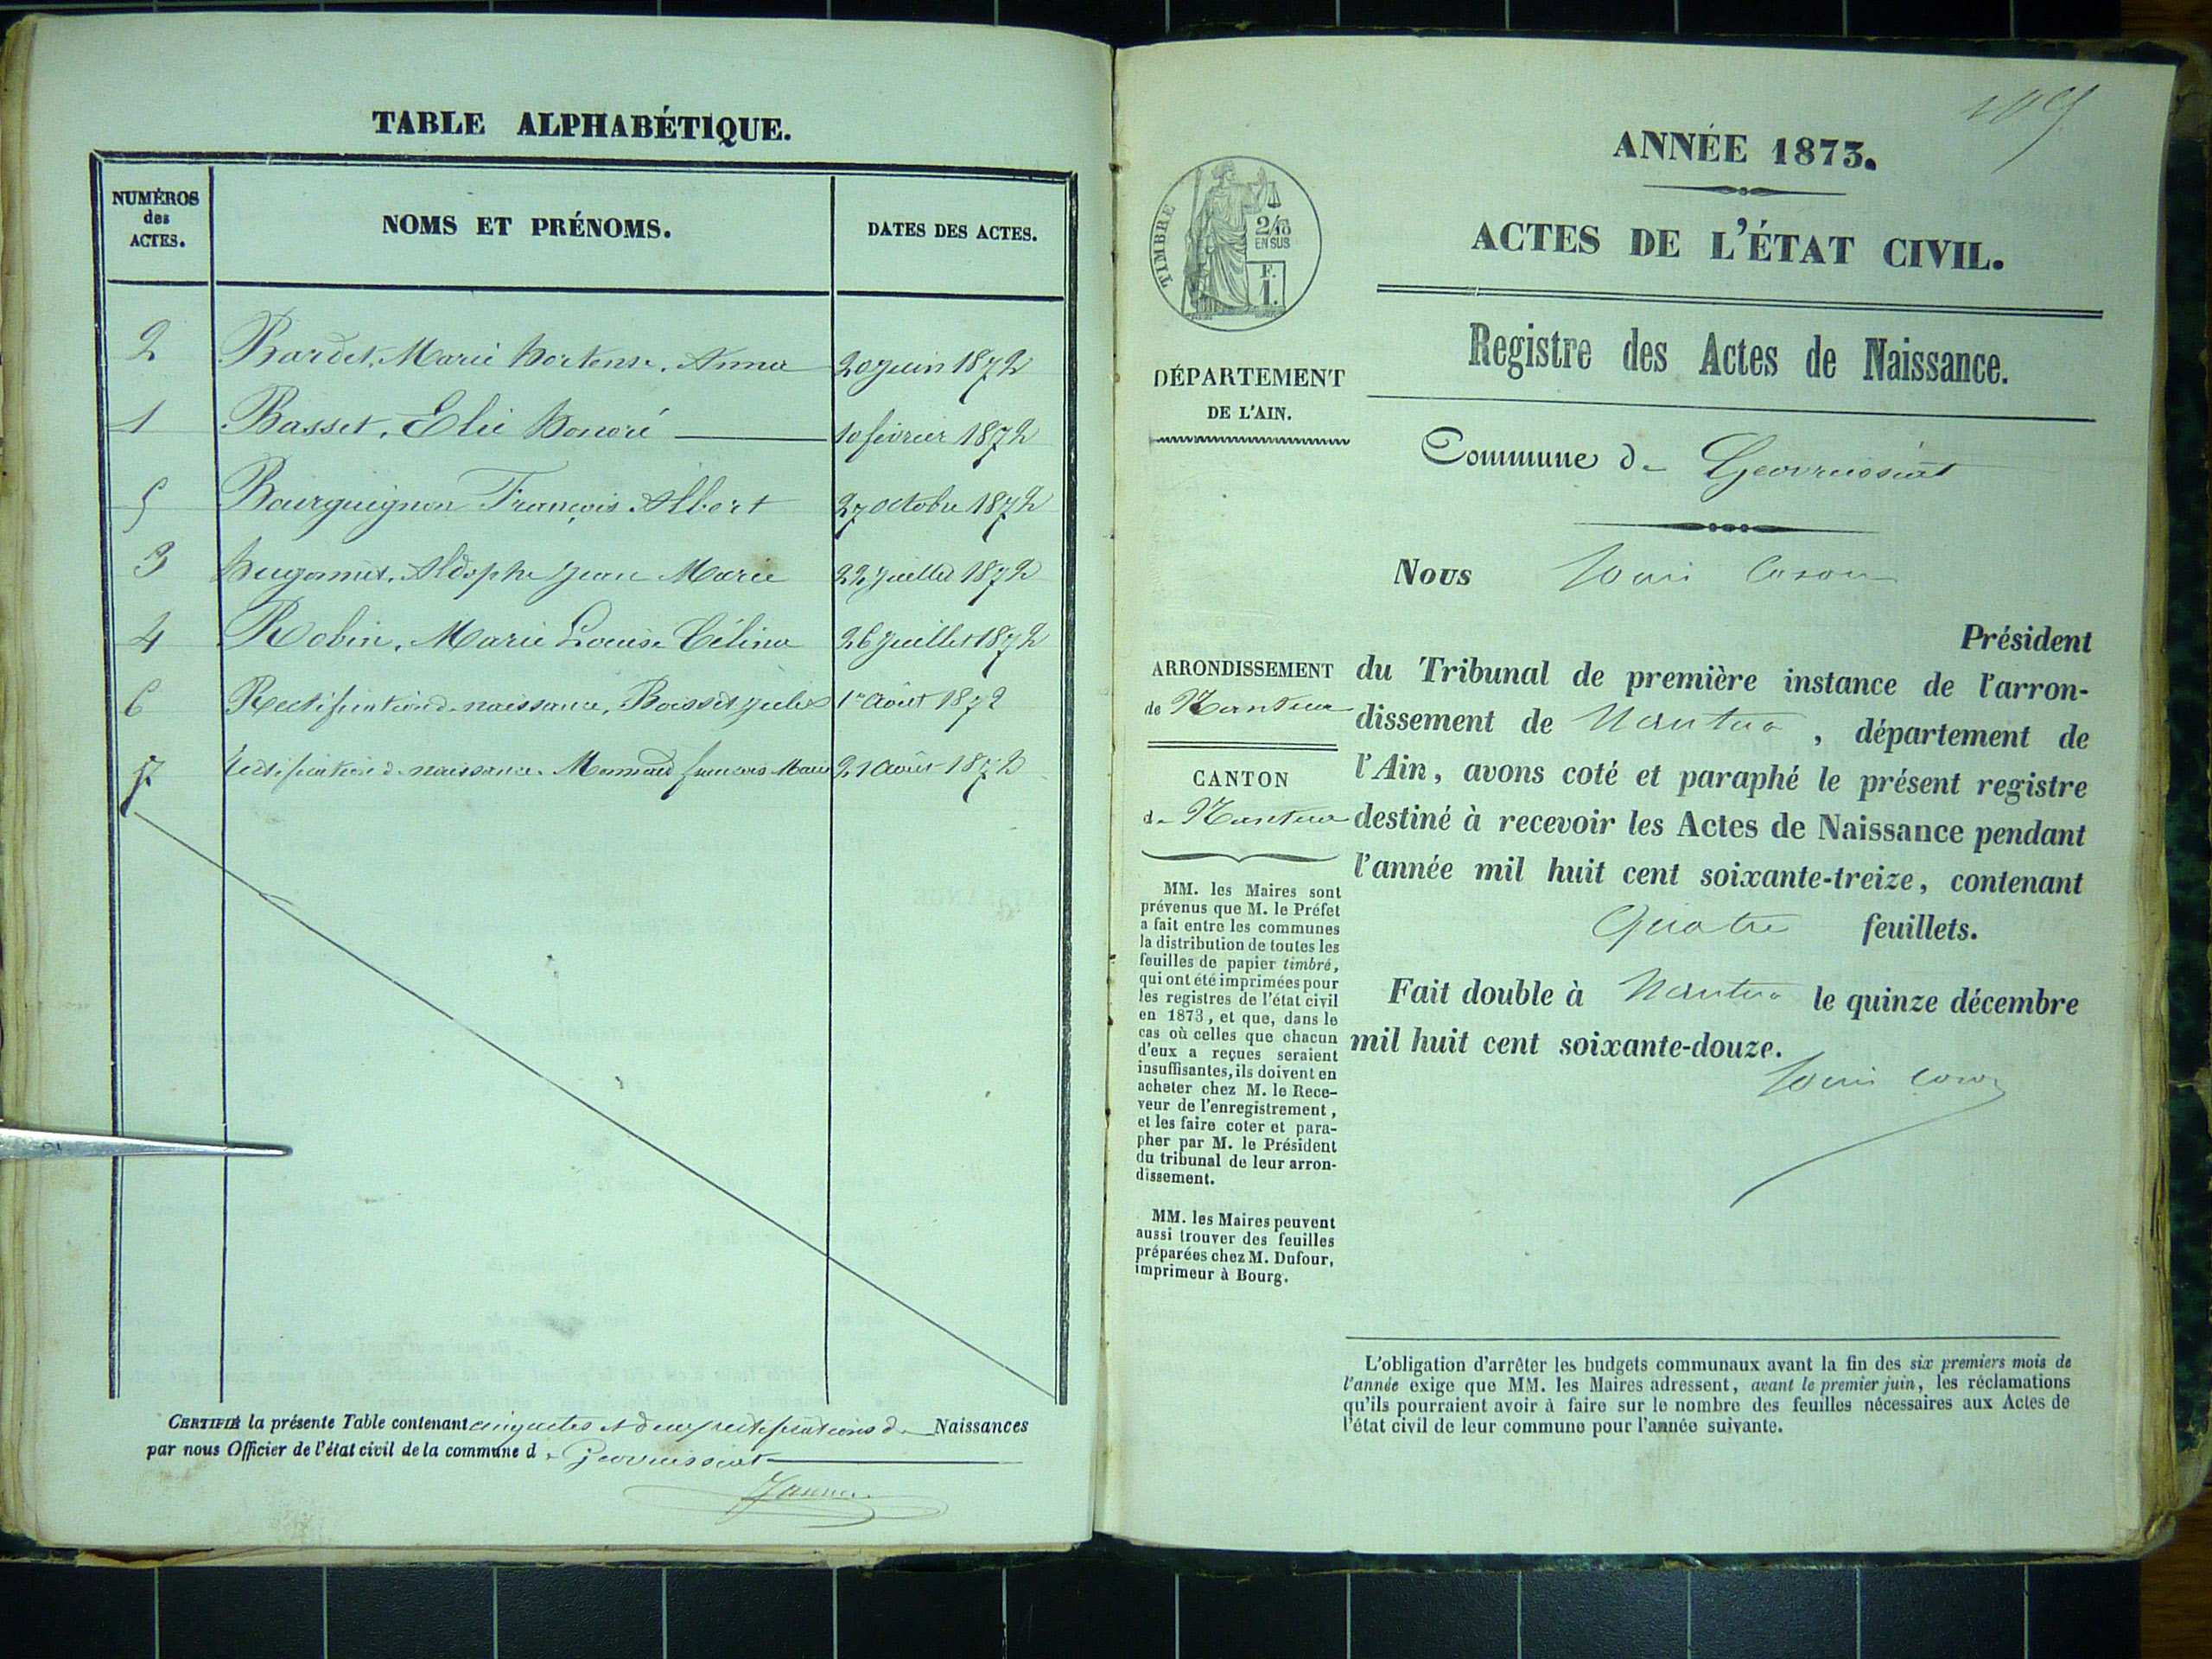 TABLE ALPHABÉTIQUE.
NUMÉROS des ACTES.
NOMS ET PRÉNOMS.
DATES DES ACTES.
2 Bardet, Marie hortense, Anna 20 juin 1872
1 Basset, Elie honoré 10 février 1872
5 Bourguignon François Albert 27 octobre 1872
3 hugonnet, Aldophe jean Marie 22 juillet 1872
4 Robin, Marie Louise Célina 26 juillet 1872
6 Rectification de naissance, 1er Août 1872
7 Rectification de naissance. françois Marie 21 Août 1872
CERTIFIÉ la présente Table contenant cinq actes et deux rectifications de Naissances
par nous Officier de l'état civil de la commune d e Geovreissiat
109
ANNÉE 1873.
ACTES DE L'ÉTAT CIVIL.
TIMBRE
2/10
EN SUS
F.
1.
Registre des Actes de Naissance.
DÉPARTEMENT
DE L'AIN.
Commune de Geovreissiat
Nous
Président
ARRONDISSEMENT
de Nantua
CANTON
de Nantua
du Tribunal de première instance de l'arron-
dissement de Nantua, département de
l'Ain, avons coté et paraphé le présent registre
destiné à recevoir les Actes de Naissance pendant
l'année mil huit cent soixante-treize, contenant
quatre feuillets.
Fait double à Nantua le quinze décembre
mil huit cent soixante-douze.
MM. les Maires sont
prévenus que M. le Préfet
a fait entre les communes
la distribution de toutes les
feuilles de papier timbré,
qui ont été imprimées pour
les registres de l'état civil
en 1873, et que, dans le
cas où celles que chacun
d'eux a reçues seraient
insuffisantes, ils doivent en
acheter chez M. le Rece-
veur de l'enregistrement,
et les faire coter et para-
pher par M. le Président
du tribunal de leur arron-
dissement.
MM. les Maires peuvent
aussi trouver des feuilles
préparées chez M. Dufour,
imprimeur à Bourg.
L'obligation d'arrêter les budgets communaux avant la fin des six premiers mois de
l'année exige que MM. les Maires adressent, avant le premier juin, les réclamations
qu'ils pourraient avoir à faire sur le nombre des feuilles nécessaires aux Actes de
l'état civil de leur commune pour l'année suivante.